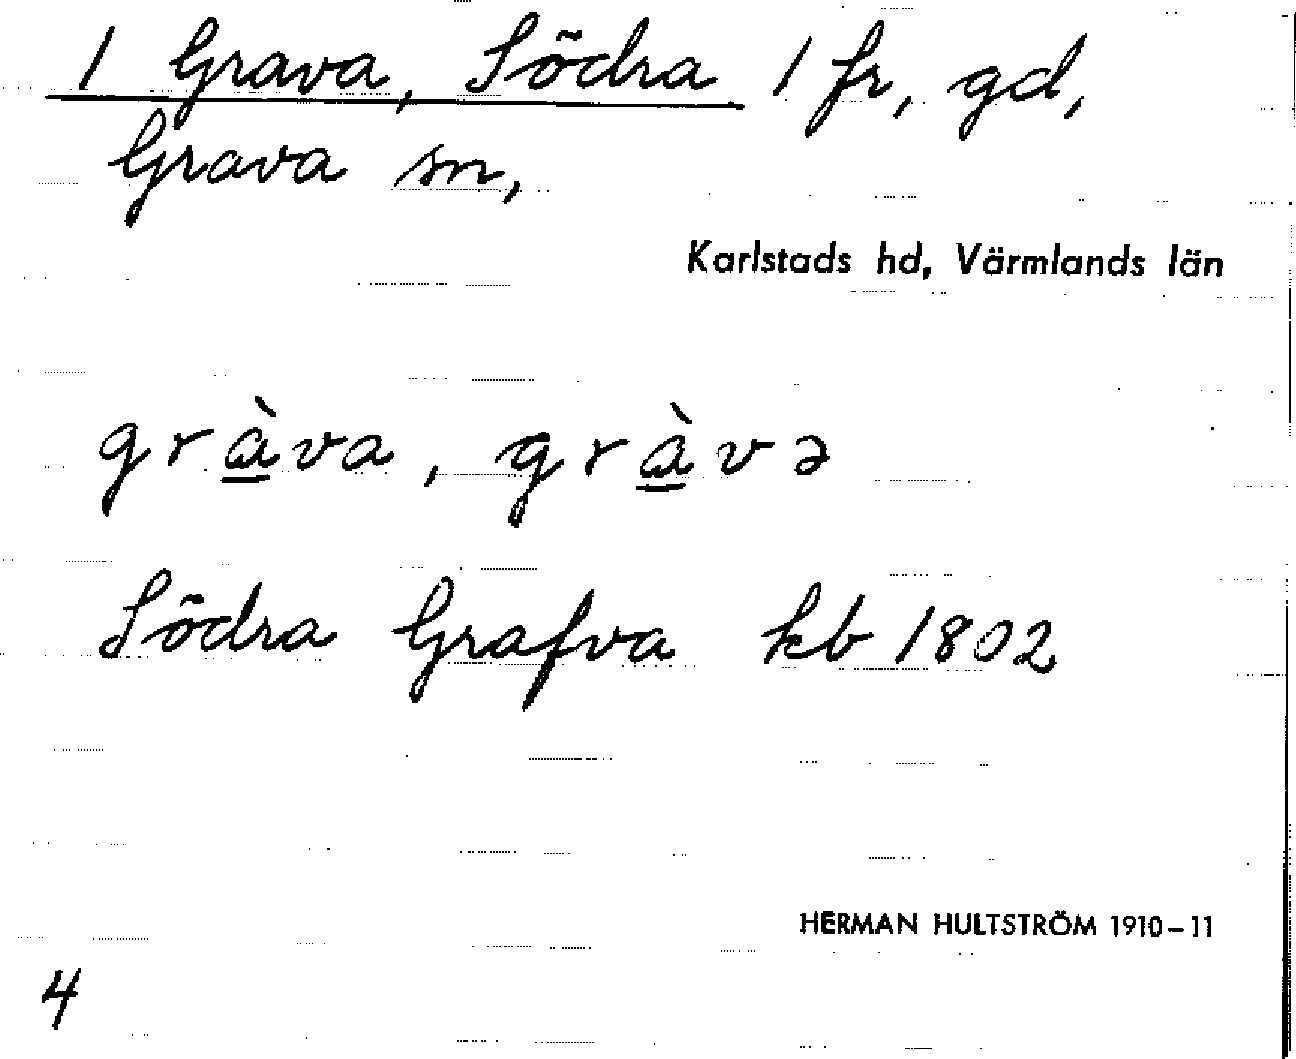 1 Grava, Södra 1 fr, gd,
Grava sn,
Karlstads hd, Värmlands län
grà̲va, grà̲və
Södra Grafva kb 1802
HERMAN HULTSTRÖM 1910–11
4